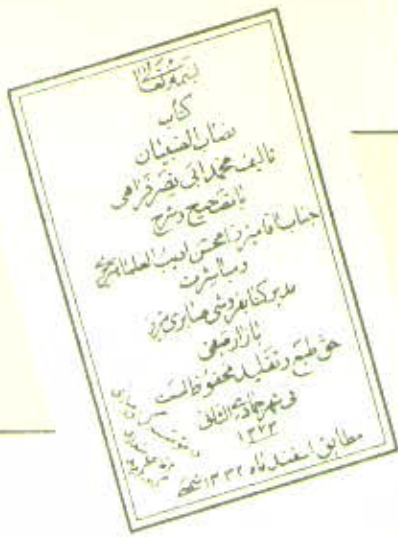 بسمه تعالی
کتاب
نصاب الصبیان
تالیف محمد ابی نصر فراهی
با تصحیح و شرح
جناب آقا میرزا محسن ادیب العلماء تبریزی
و مباشرت
مدیر کتابفروشی صابری تبریز
بازار صفی
حق طبع و تقلید محفوظ است
فی شهر جمادی الثانی
۱۳۷۳
مطابق اسفند ماه ۱۳۳۲ شمسی